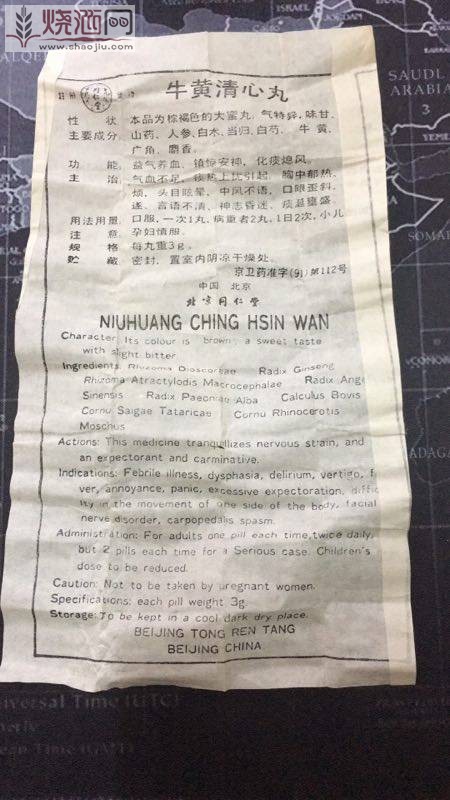 烧酒网
www.shaojiu.com
SAUDI
ARABIA
牛黄清心丸
性 状 本品为棕褐色的大蜜丸，气特异，味甘．
主要成分，山药、人参、白木、当归、白芍、 牛 黄，
广角、麝香。
功 能，益气养血、镇惊安神、化痰熄风。
主 治，气血不足，痰热上扰引起、胸中郁热，
烦，头目眩晕、中风不语，口眼歪斜，
遂、言语不清，神志昏迷，痰涎壅盛．
用法用量，口服，一次1丸，病重者2丸，1日2次，小儿
注 意，孕妇慎服。
规 格 每丸重3g．
贮 藏 密封，置室内阴凉干燥处。
京卫药准字(91)第112号
中国 北京
北京同仁堂
NIUHUANG CHING HSIN WAN
Character: Its colour is brown, a sweet taste
with slight bitter
Ingredients: Rhizoma Dioscoreae Radix Ginseng
Rhizoma Atractylodis Macrocephalae Radix Ange
Sinensis Radix Paeoniae Alba Calculus Bovis
Cornu Saigae Tataricae Cornu Rhinocerotis
Moschus
Actions: This medicine tranquilizes nervous strain, and
an expectorant and carminative.
Indications: Febrile illness, dysphasia, delirium, vertigo, f
ver, annoyance, panic, excessive expectoration, diffic
lty in the movement of one side of the body, facial
nerve disorder, carpopedalis spasm.
Administration: For adults one pill each time, twice daily,
but 2 pills each time for a Serious case. Children's
dose to be reduced.
Caution: Not to be taken by uregnant women.
Specifications: each pill weight 3g.
Storage: To be kept in a cool dark dry place.
BEIJING TONG REN TANG
BEIJING CHINA
iversal Time (UTC)
ean Time (GMT)